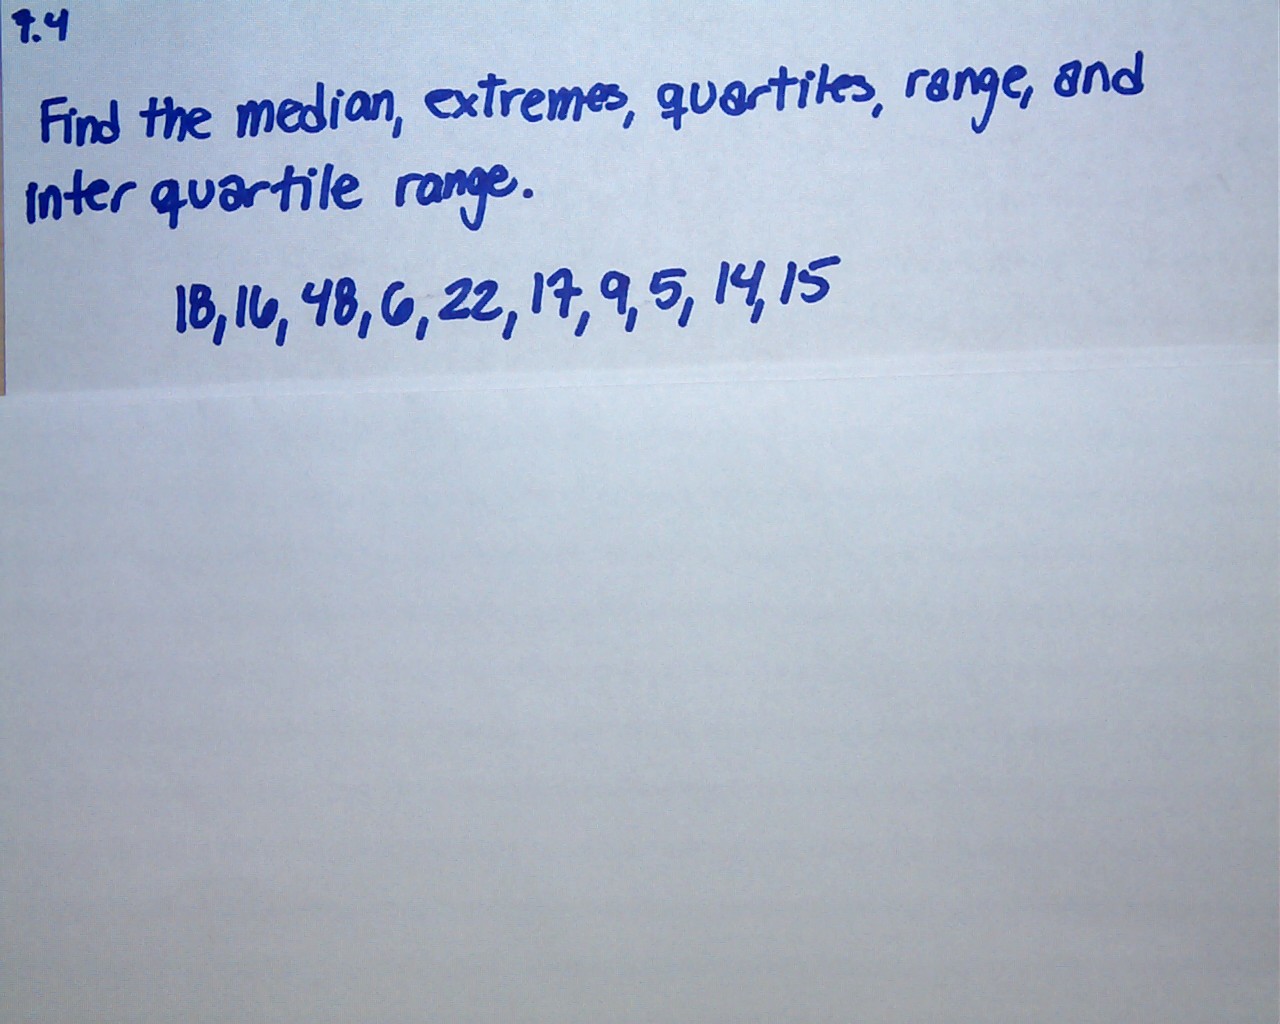 9.4
Find the median, extremes, quartiles, range, and
inter quartile range.
18, 16, 48, 6, 22, 17, 9, 5, 14, 15